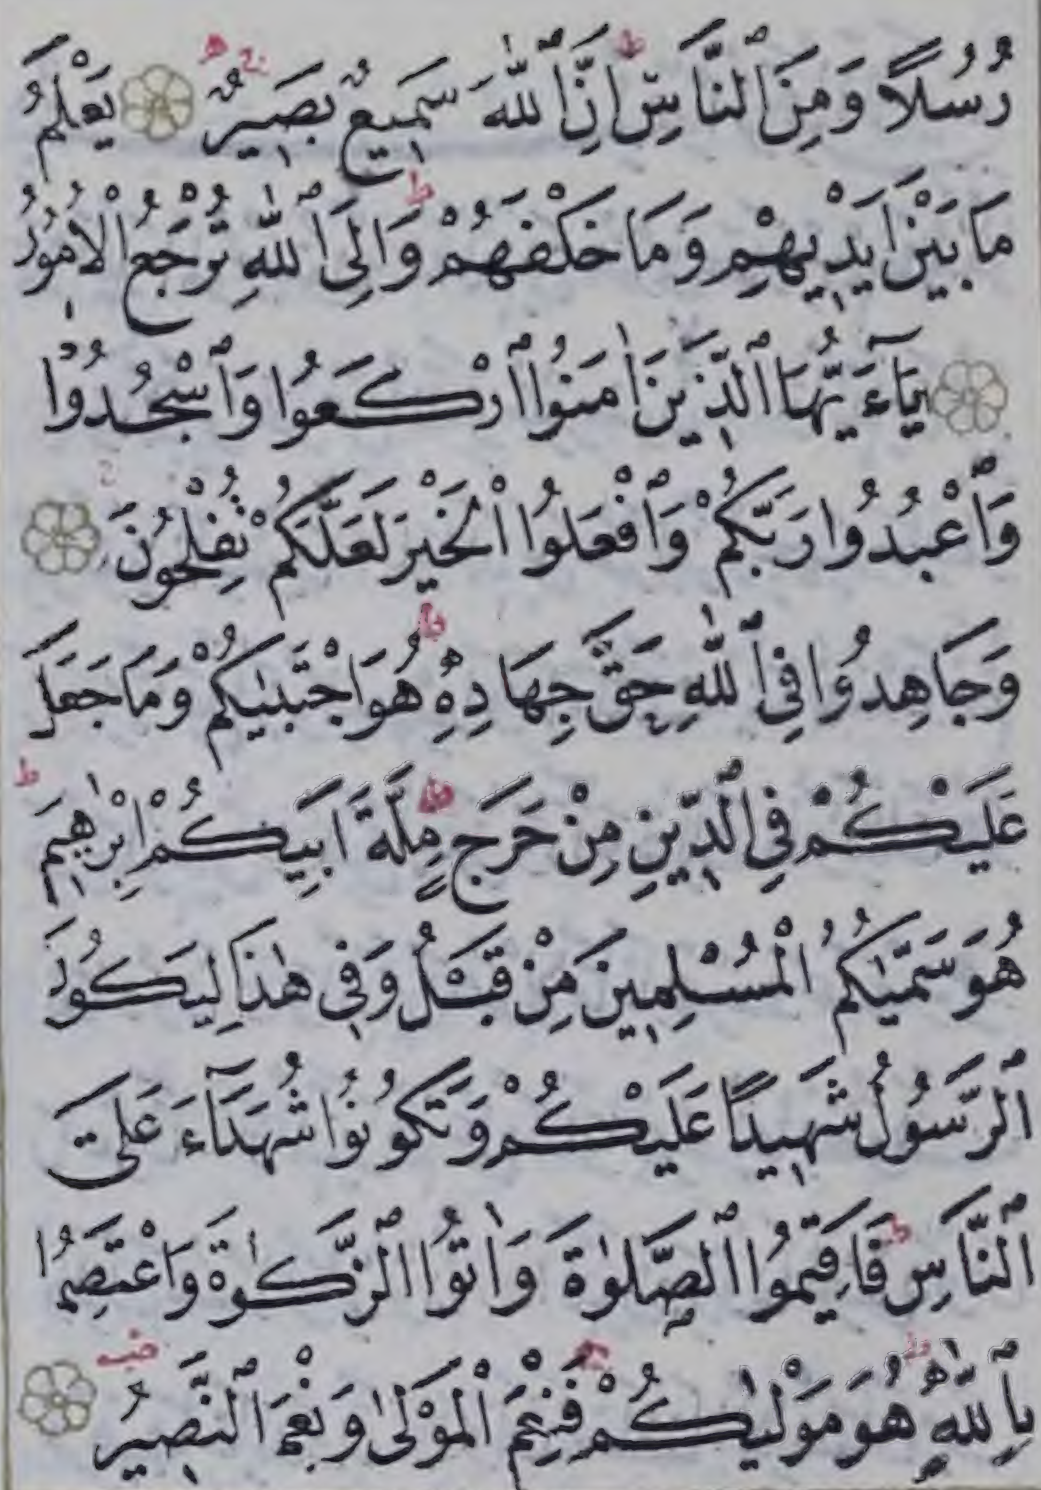 رُسُلًا وَمِنَ ٱلنَّاسِ ط اِنَّ ٱللّٰهَ سَمِيعٌ بَصِيرٌ ج ه يَعْلَمُ
مَا بَيْنَ اَيْدِيهِمْ وَمَا خَلْفَهُمْ ط وَاِلَى ٱللّٰهِ تُرْجَعُ الْاُمُورُ
يَآءَيُّهَا ٱلَّذِينَ اٰمَنُوا ٱرْكَعُوا وَٱسْجُدُوا
وَٱعْبُدُوا رَبَّكُمْ وَٱفْعَلُوا الْخَيْرَ لَعَلَّكُمْ تُفْلِحُونَ
وَجَاهِدُوا فِي ٱللّٰهِ حَقَّ جِهَادِهِ ط هُوَ اجْتَبٰيكُمْ وَمَا جَعَلَ
عَلَيْكُمْ فِي ٱلدِّينِ مِنْ حَرَجٍ ط مِلَّةَ اَبِيكُمْ اِبْرٰهِيمَ ط
هُوَ سَمّٰيكُمُ الْمُسْلِمِينَ مِنْ قَبْلُ وَفِي هٰذَا لِيَكُونَ
ٱلرَّسُولُ شَهِيدًا عَلَيْكُمْ وَتَكُونُوا شُهَدَآءَ عَلَى
ٱلنَّاسِ ط فَاَقِيمُوا ٱلصَّلٰوةَ وَاٰتُوا ٱلزَّكٰوةَ وَاعْتَصِمُوا
بِٱللّٰهِ ط هُوَ مَوْلٰيكُمْ ج فَنِعْمَ الْمَوْلٰى وَنِعْمَ ٱلنَّصِيرُ